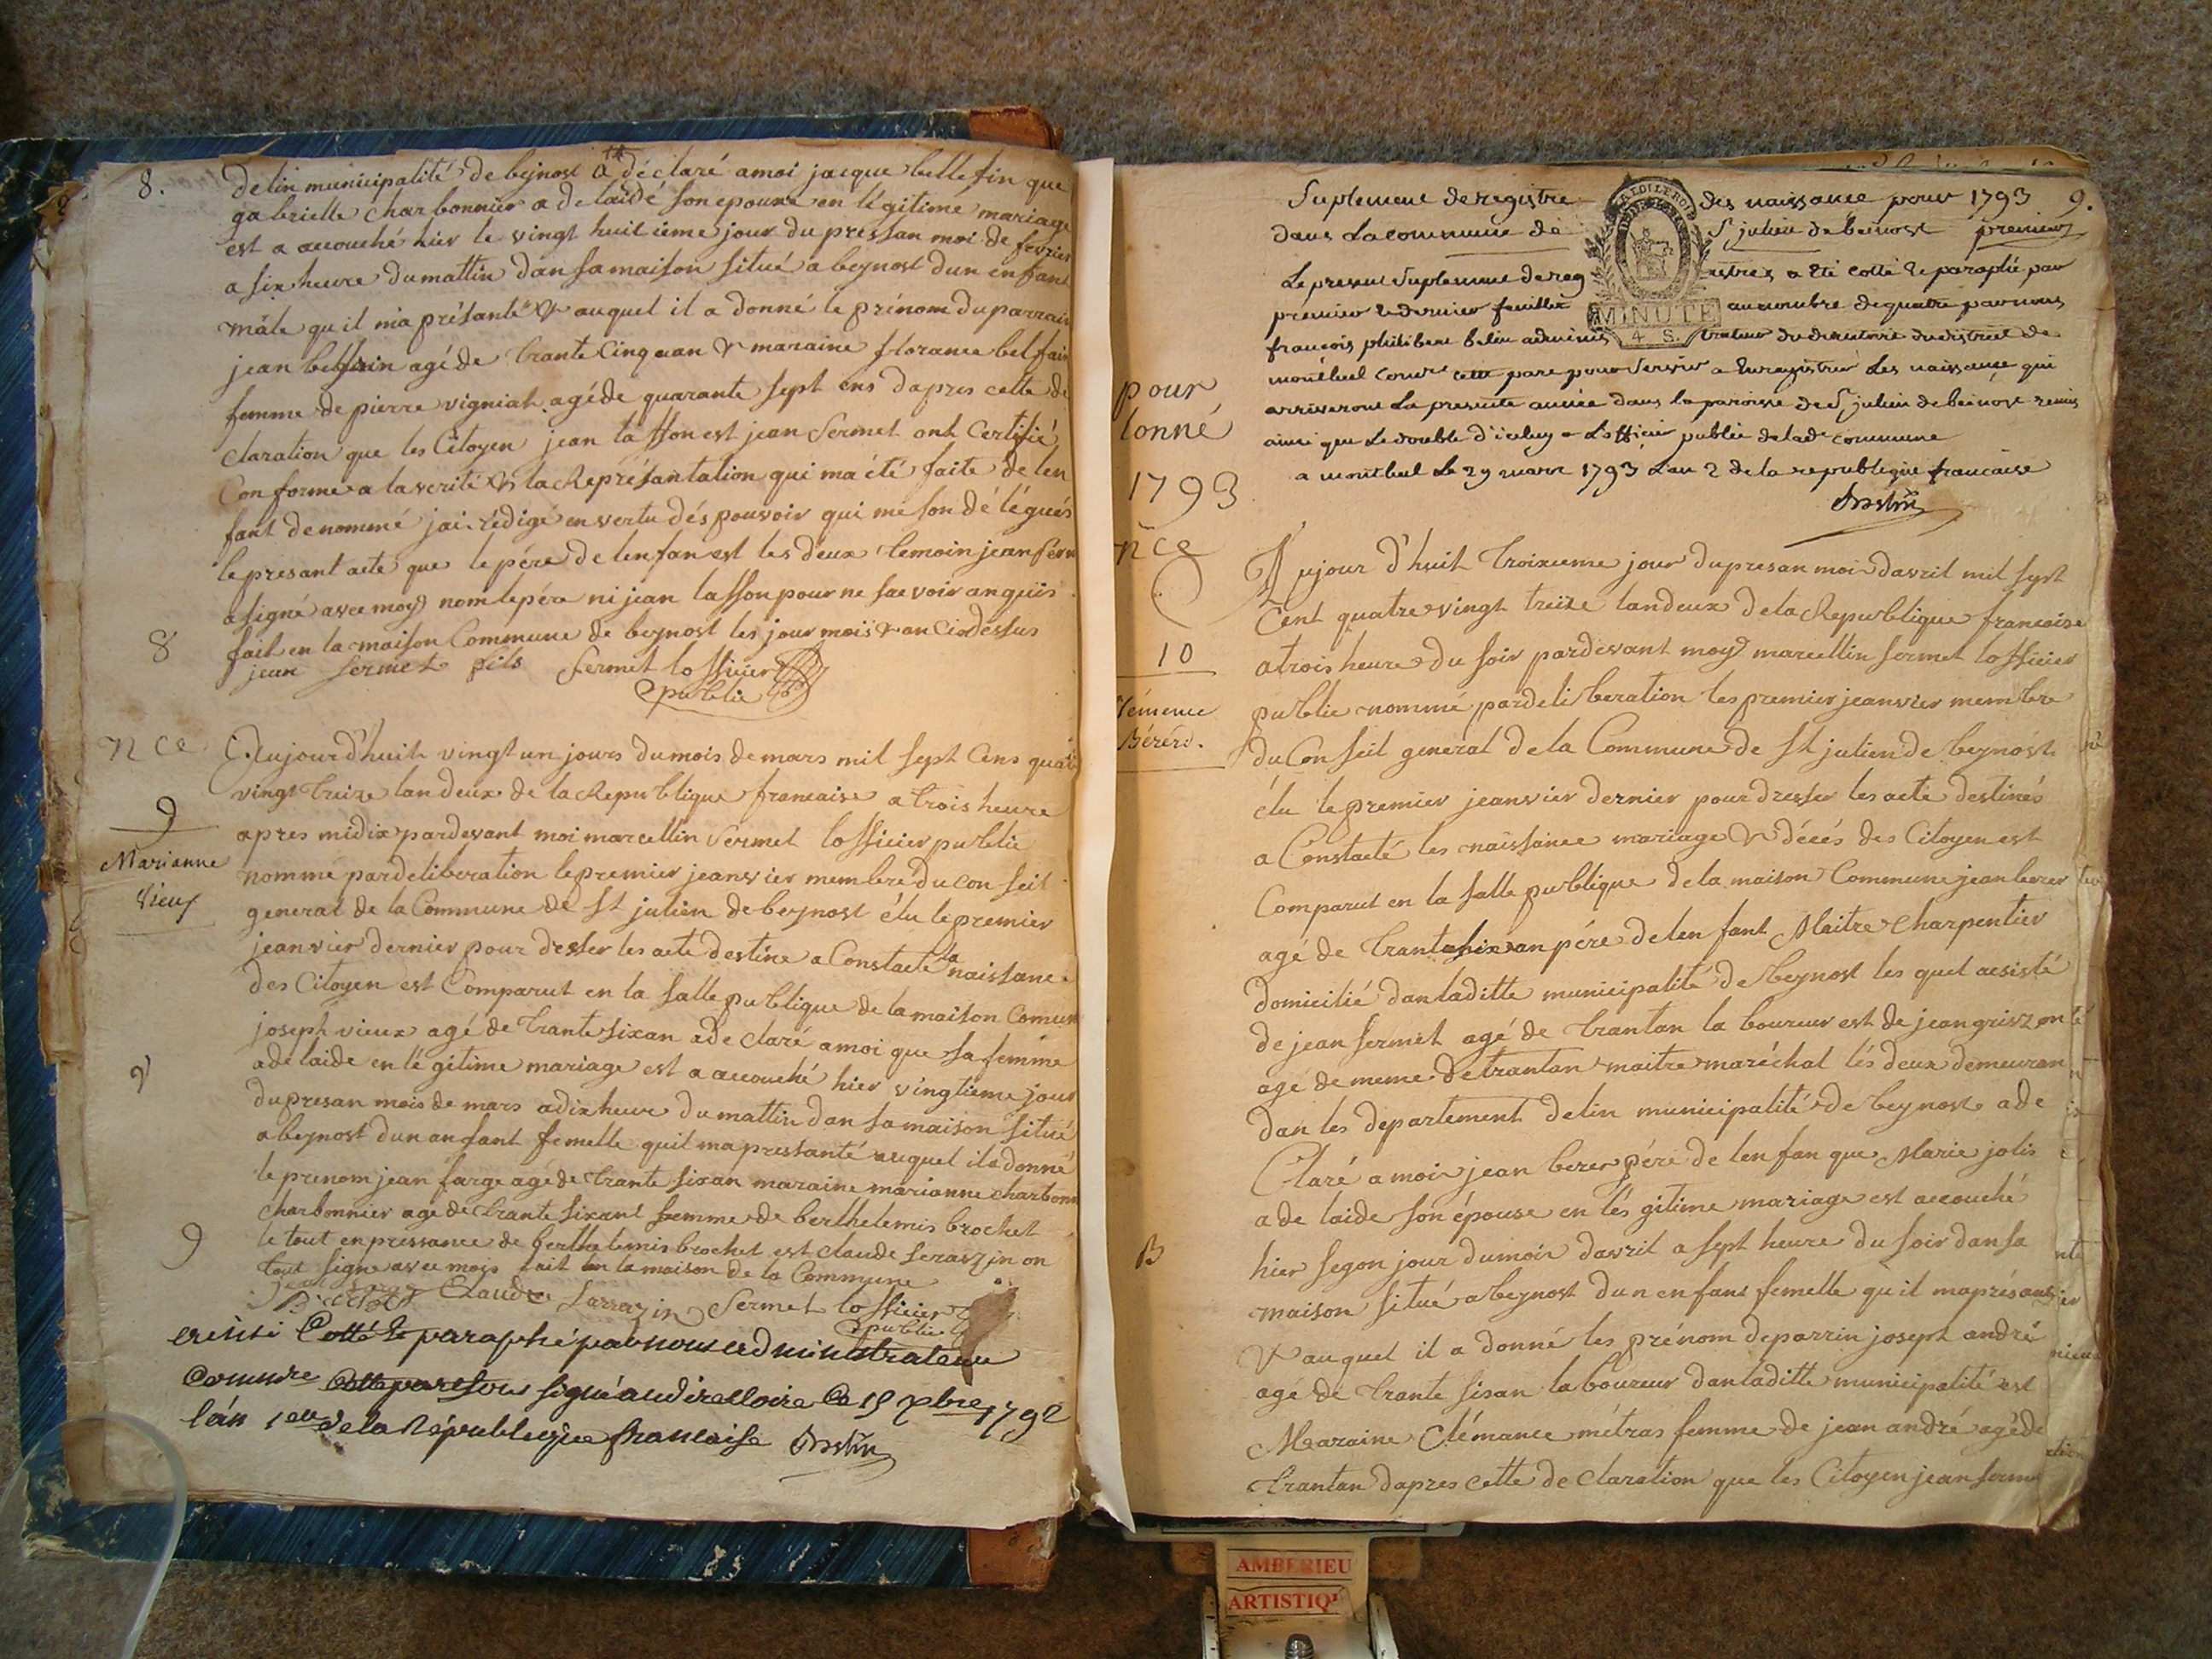 8.
delin municipalité de beynost a déclaré amoi jacque bellefin que
gabrielle charbonnier adelaidé son epouse en légitime mariage
est a accouché hier le vingt huit ieme jour du pressan moi de fevrier
a six heure du mattin dan sa maison situé a beynost dun enfant
mâle qu il ma présanté & auquel il a donné le prénom du parrain
jean agé de trante cinq an & maraine florance belfain
femme de pierre vigniat agé de quarante sept ans dapres cette de
claration que les Citoyen jean lasson est jean Sermet ont certifié
Conforme a la verité & la Représantation qui ma été faite de len
fant denommé jai rédigé en vertu dés pouvoir qui me son délégués
le presant acte que le pére de lenfan est les deux temoin jean ferm
a signé avec moy nom le pére ni jean lasson pour ne savoir anquis
fait en la maison Commune de beynost les jour mois & an cidessus
8
jean sermet fils Sermet lofficier
publie
nce
Aujourd'huit vingt un jours du mois de mars mil sept Cens quatre
vingt treize lan deux de la Republique francaise a trois heure
9
apres midix pardevant moi marcellin Sermet lofficier publie
Marianne
vieux
nommé pardeliberation le premier jeanvier membre du conseil
general de la Commune de St julien de beynost élu le premier
jeanvier dernier pour desser les acte destine a Constaté la naissance
des Citoyen est Comparut en la salle publique de la maison Comune
joseph vieux agé de trante sixan a de claré amoi que sa femme
adelaide en légitime mariage est a accouché hier vingtieme jour
9
du presan mois de mars a dix heure du mattin dan sa maison situé
a beynost dun anfant femelle quil ma pressanté auquel il a donné
le prenom jean farge agé de trante sixan maraine marianne charbonn
charbonnier age de trante sixant femme de berthelemis brochet
9
le tout en pressance de berthelemis brochet est claude serazin on
tout signe avec mois fait en la maison de la Commune
Claude Sarrazin Sermet lofficier
publie
Cotté & paraphé par nous administrateur
commre signé au directoire ce 15 xbre 1792
lán 1er de la République francaise
Suplement de registre des naissance pour 1793 9.
dans La commune de St julien de beinost premier
Le present Suplement de registres a été cotté & paraphé par
premier & dernier feuillet au nombre de quatre par nous
francois philibert belin administrateur du directoire du district de
montluel comre cette part pour servir a Enregistrer Les naissance qui
arriveront La presente année dans la paroisse de St julien de beinost remis
ainsi que Le double d'icelluy a Lofficier public de lade commune
a montluel Le 29 mars 1793 Lan 2 de la republique francaise
LA LOI LE ROI
MINUTE
4 S.
pour
lonné
1793
nce
10
lémence
Béréro.
Aujour d'huit troixieme jour du presan moi davril mil sept
Cent quatre vingt treize lan deux de la Republique francaise
a trois heure du soir pardevant moy marcellin sermet lofficier
publie nommé pardeliberation les premier jeanvier membre
du Conseil general de la Commune de St julien de beynost
élu le premier jeanvier dernier pour dresser les acte destinés
a Constaté les naissance mariage & décés des Citoyen est
Comparut en la salle publique de la maison Commune jean berer
agé de trante six an pére de len fant Maitre Charpentier
domicilié dan laditte municipalité de beynost les quel acsisté
de jean sermet agé de trantan la boureur est de jean grisz on
agé de meme de trantan maitre maréchal lés deux demeuran
dan les departement delin municipalité de beynost a de
Claré a moi jean berer pére de len fan que Marie jolis
a de laide son épouse en lés gitime mariage est accouché
B
hier segon jour du moi davril a sept heure du soir dan sa
maison situé a beynost dun enfant femelle qu il ma présant
& auquel il a donné les prénom deparrin josept andré
agé de trante sixan laboureur dan laditte municipalité est
Maraine Clémance métras femme de jean andré agé de
trantan dapres cette de claration que les Citoyen jean serme
AMBERIEU
ARTISTIQ